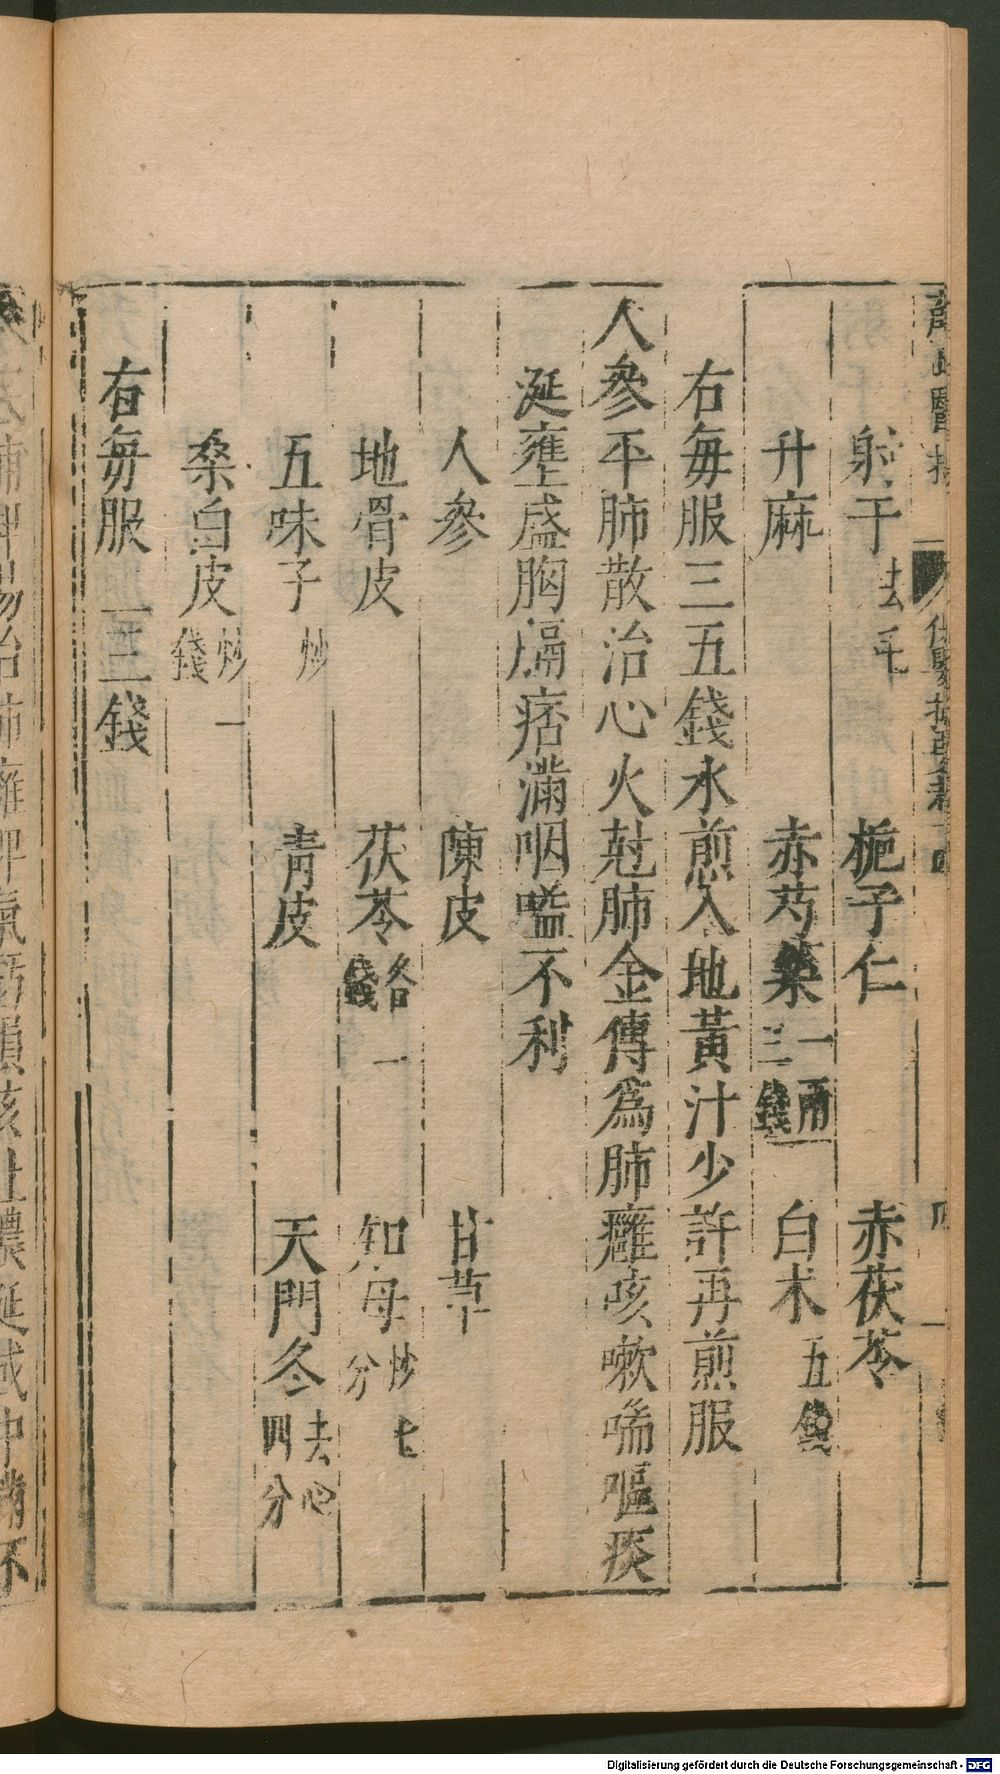 射干去毛　梔子仁　赤茯苓
升麻　赤芍藥一兩三錢　白朮五錢
右每服三五錢水煎入地黃汁少許再煎服
人參平肺散治心火尅肺金傳為肺癰咳嗽喘嘔痰
涎壅盛胸膈痞滿咽嗌不利
人參　陳皮　甘草
地骨皮　茯苓各一錢　知母炒七分
五味子炒　青皮　天門冬去心四分
桑白皮炒一錢
右每服二三錢
Digitalisierung gefördert durch die Deutsche Forschungsgemeinschaft - DFG